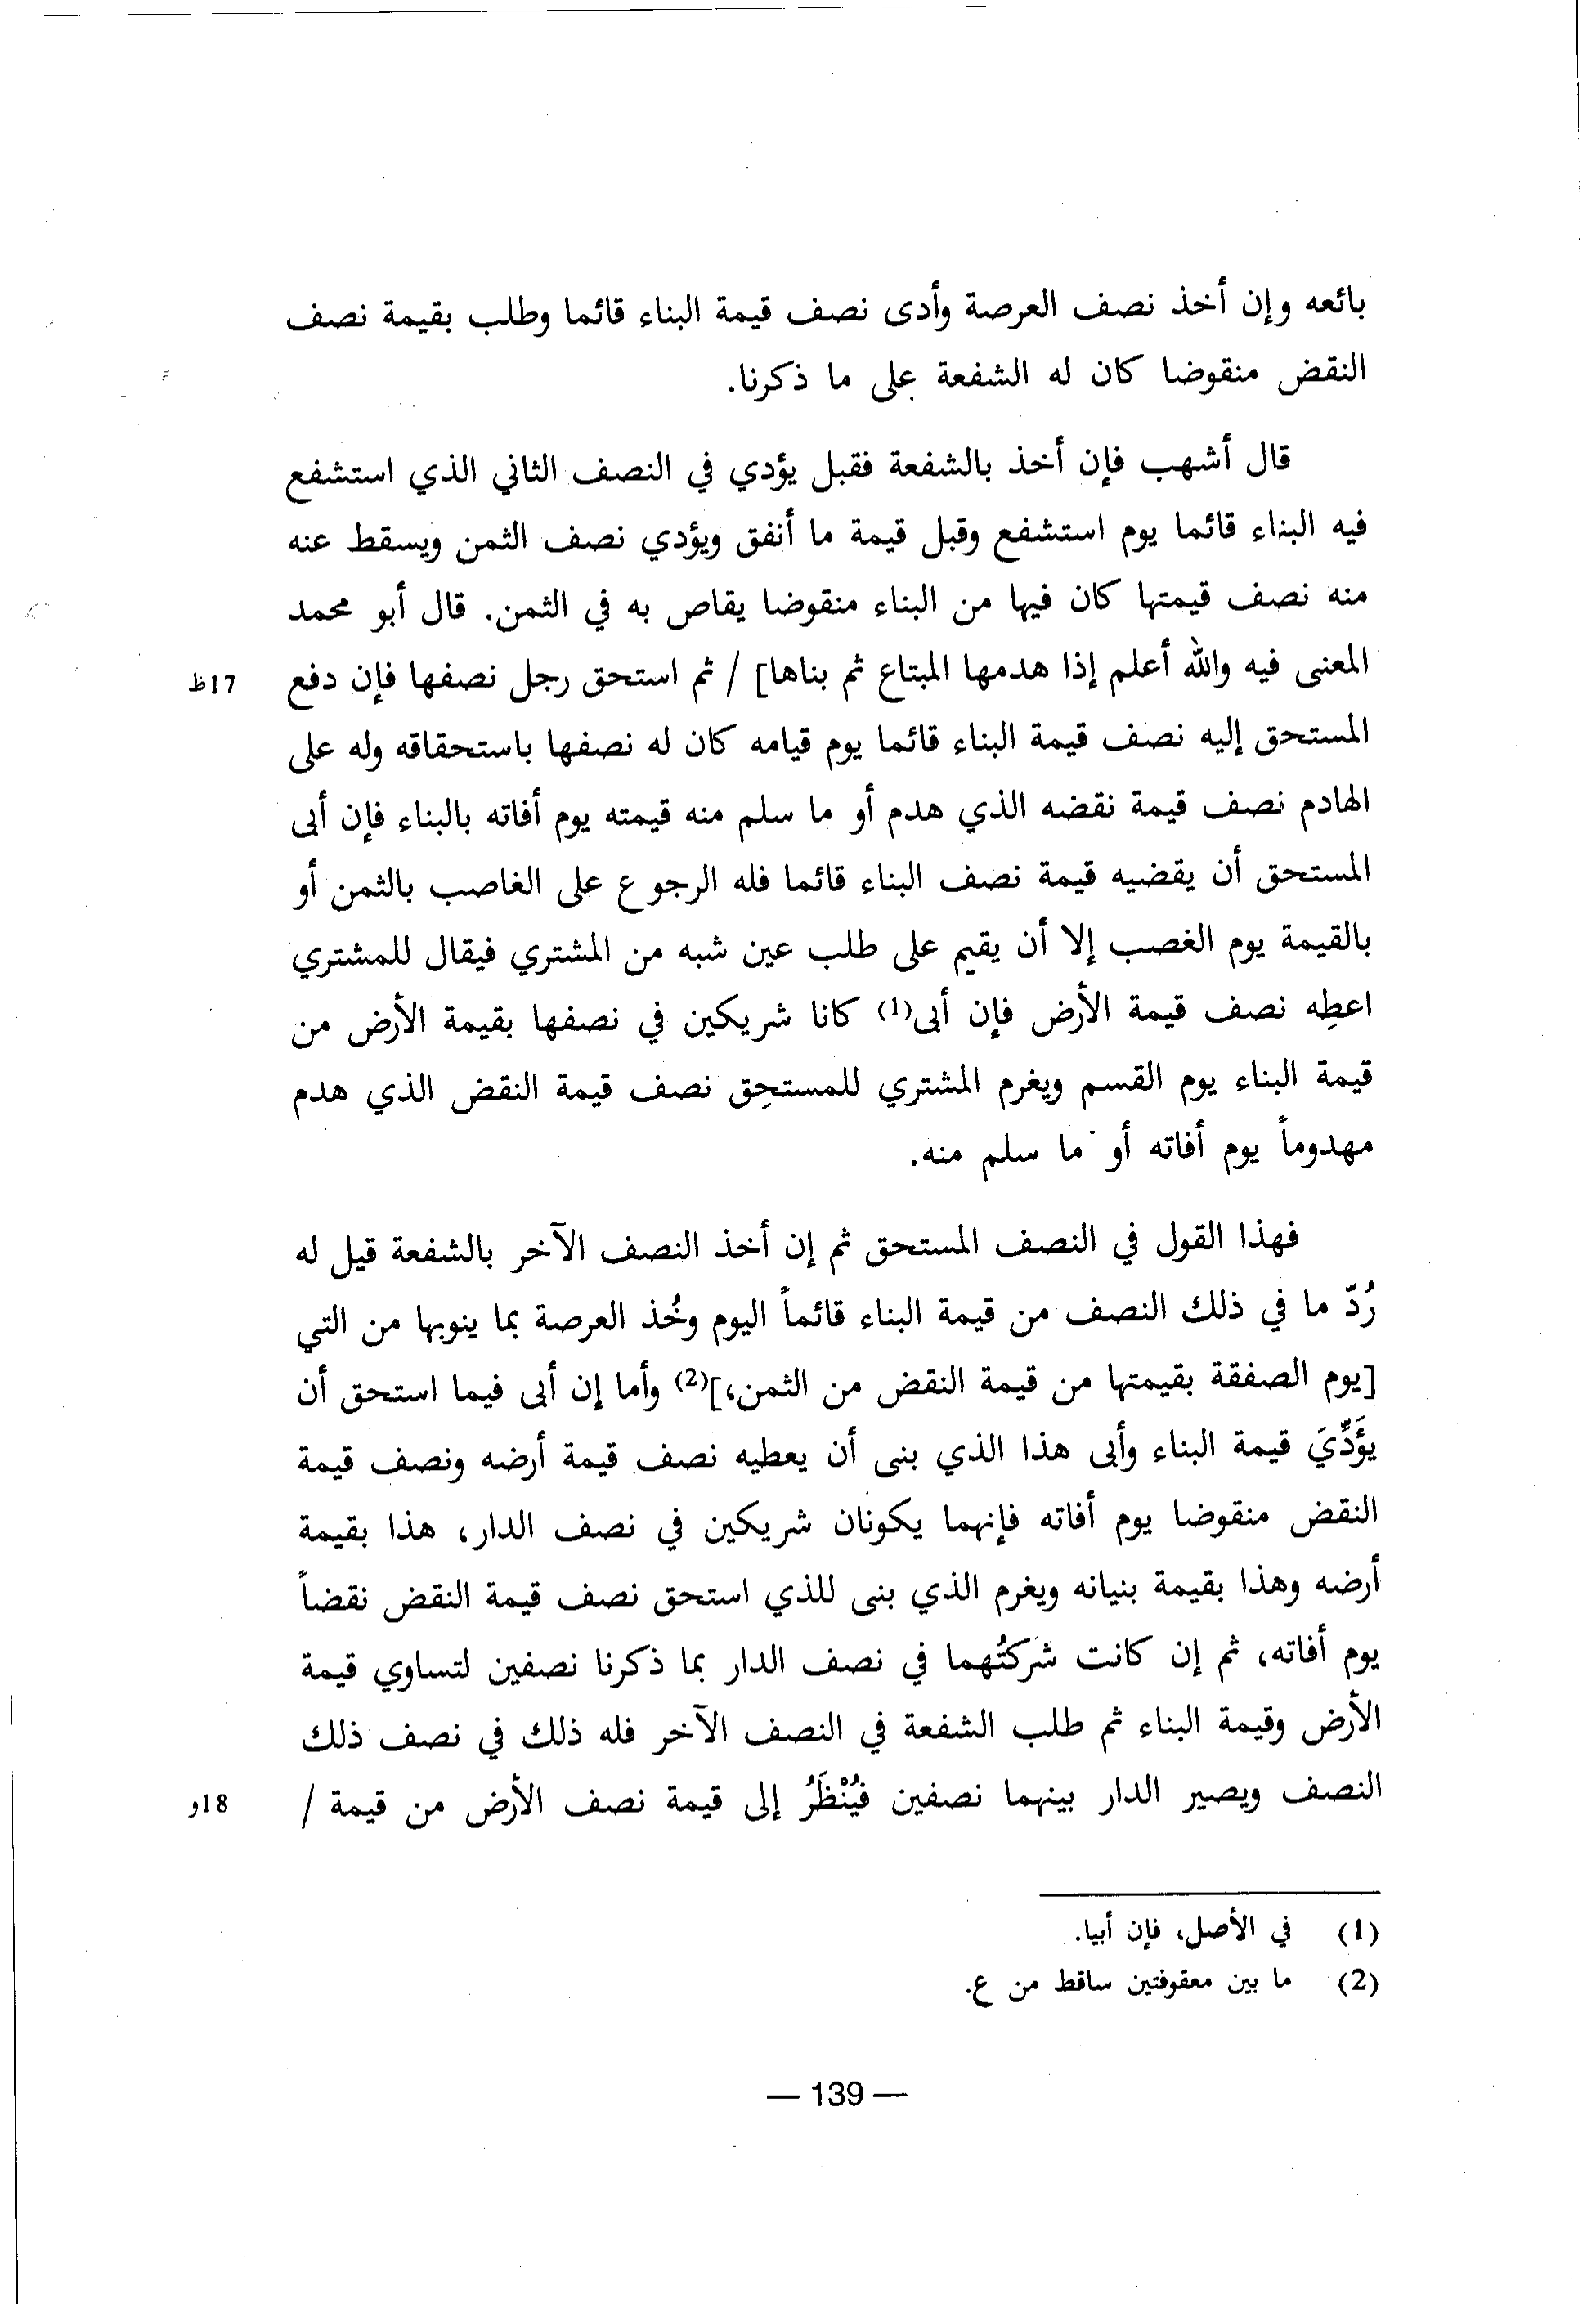 بائعه وإن أخذ نصف العرصة وأدى نصف قيمة البناء قائما وطلب بقيمة نصف
النقض منقوضا كان له الشفعة على ما ذكرنا.
قال أشهب فإن أخذ بالشفعة فقبل يؤدي في النصف الثاني الذي استشفع
فيه البناء قائما يوم استشفع وقبل قيمة ما أنفق ويؤدي نصف الثمن ويسقط عنه
منه نصف قيمتها كان فيها من البناء منقوضا يقاص به في الثمن. قال أبو محمد
المعنى فيه والله أعلم إذا هدمها المبتاع ثم بناها] / ثم استحق رجل نصفها فإن دفع
17ظ
المستحق إليه نصف قيمة البناء قائما يوم قيامه كان له نصفها باستحقاقه وله على
الهادم نصف قيمة نقضه الذي هدم أو ما سلم منه قيمته يوم أفاته بالبناء فإن أبى
المستحق أن يقضيه قيمة نصف البناء قائما فله الرجوع على الغاصب بالثمن أو
بالقيمة يوم الغصب إلا أن يقيم على طلب عين شبه من المشتري فيقال للمشتري
اعطِه نصف قيمة الأرض فإن أبى(1) كانا شريكين في نصفها بقيمة الأرض من
قيمة البناء يوم القسم ويغرم المشتري للمستحِق نصف قيمة النقض الذي هدم
مهدوماً يوم أفاته أو ما سلم منه.
فهذا القول في النصف المستحق ثم إن أخذ النصف الآخر بالشفعة قيل له
رُدّ ما في ذلك النصف من قيمة البناء قائماً اليوم وخُذ العرصة بما ينوبها من التي
[يوم الصفقة بقيمتها من قيمة النقض من الثمن،](2) وأما إن أبى فيما استحق أن
يؤَدِّيَ قيمة البناء وأبى هذا الذي بنى أن يعطيه نصف قيمة أرضه ونصف قيمة
النقض منقوضا يوم أفاته فإنهما يكونان شريكين في نصف الدار، هذا بقيمة
أرضه وهذا بقيمة بنيانه ويغرم الذي بنى للذي استحق نصف قيمة النقض نقضاً
يوم أفاته، ثم إن كانت شركتُهما في نصف الدار بما ذكرنا نصفين لتساوي قيمة
الأرض وقيمة البناء ثم طلب الشفعة في النصف الآخر فله ذلك في نصف ذلك
النصف ويصير الدار بينهما نصفين فيُنْظَرُ إلى قيمة نصف الأرض من قيمة /
18و
(1) في الأصل، فإن أبيا.
(2) ما بين معقوفتين ساقط من ع.
— 139 —